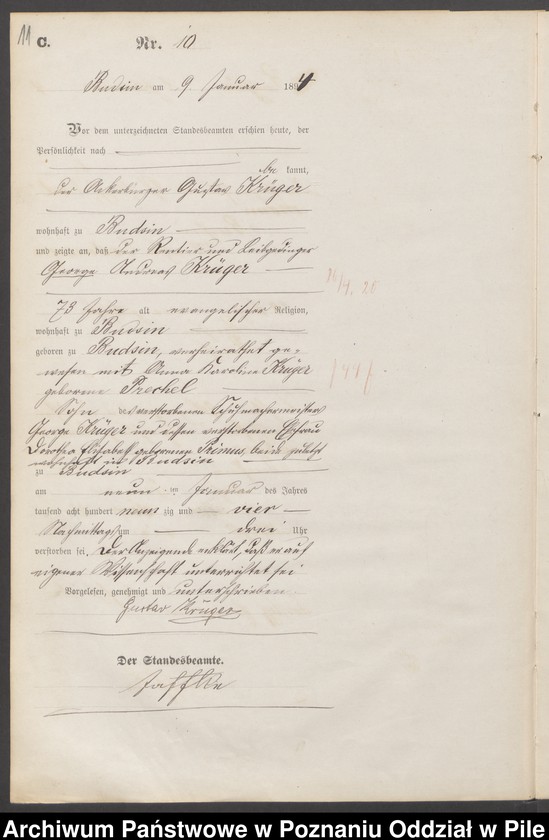 11 C. Nr. 10
Budsin am 9 Januar 1894
Vor dem unterzeichneten Standesbeamten erschien heute, der
Persönlichkeit nach
be kannt,
der Ackerbürger Gustav Krüger
wohnhaft zu Budsin
und zeigte an, daß der Rentier und Leibgedinger
George Andreas Krüger
78 Jahre alt evangelischer Religion,
wohnhaft zu Budsin
geboren zu Budsin, verheirathet ge-
wesen mit Anna Karoline Krüger
geborene Prechel
Sohn des verstorbenen Schuhmachermeisters
George Krüger und dessen verstorbenen Ehefrau
Dorothea Elisabeth geborenen Primus, beide zuletzt
wohnhaft in Budsin
zu Budsin
am neun ten Januar des Jahres
tausend acht hundert neun zig und vier
Nachmittags um drei Uhr
verstorben sei. Der Anzeigende erklärt, daß er aus
eigener Wissenschaft unterrichtet sei
Vorgelesen, genehmigt und unterschrieben
Gustav Krüger
Der Standesbeamte.
Jaffke
Archiwum Państwowe w Poznaniu Oddział w Pile